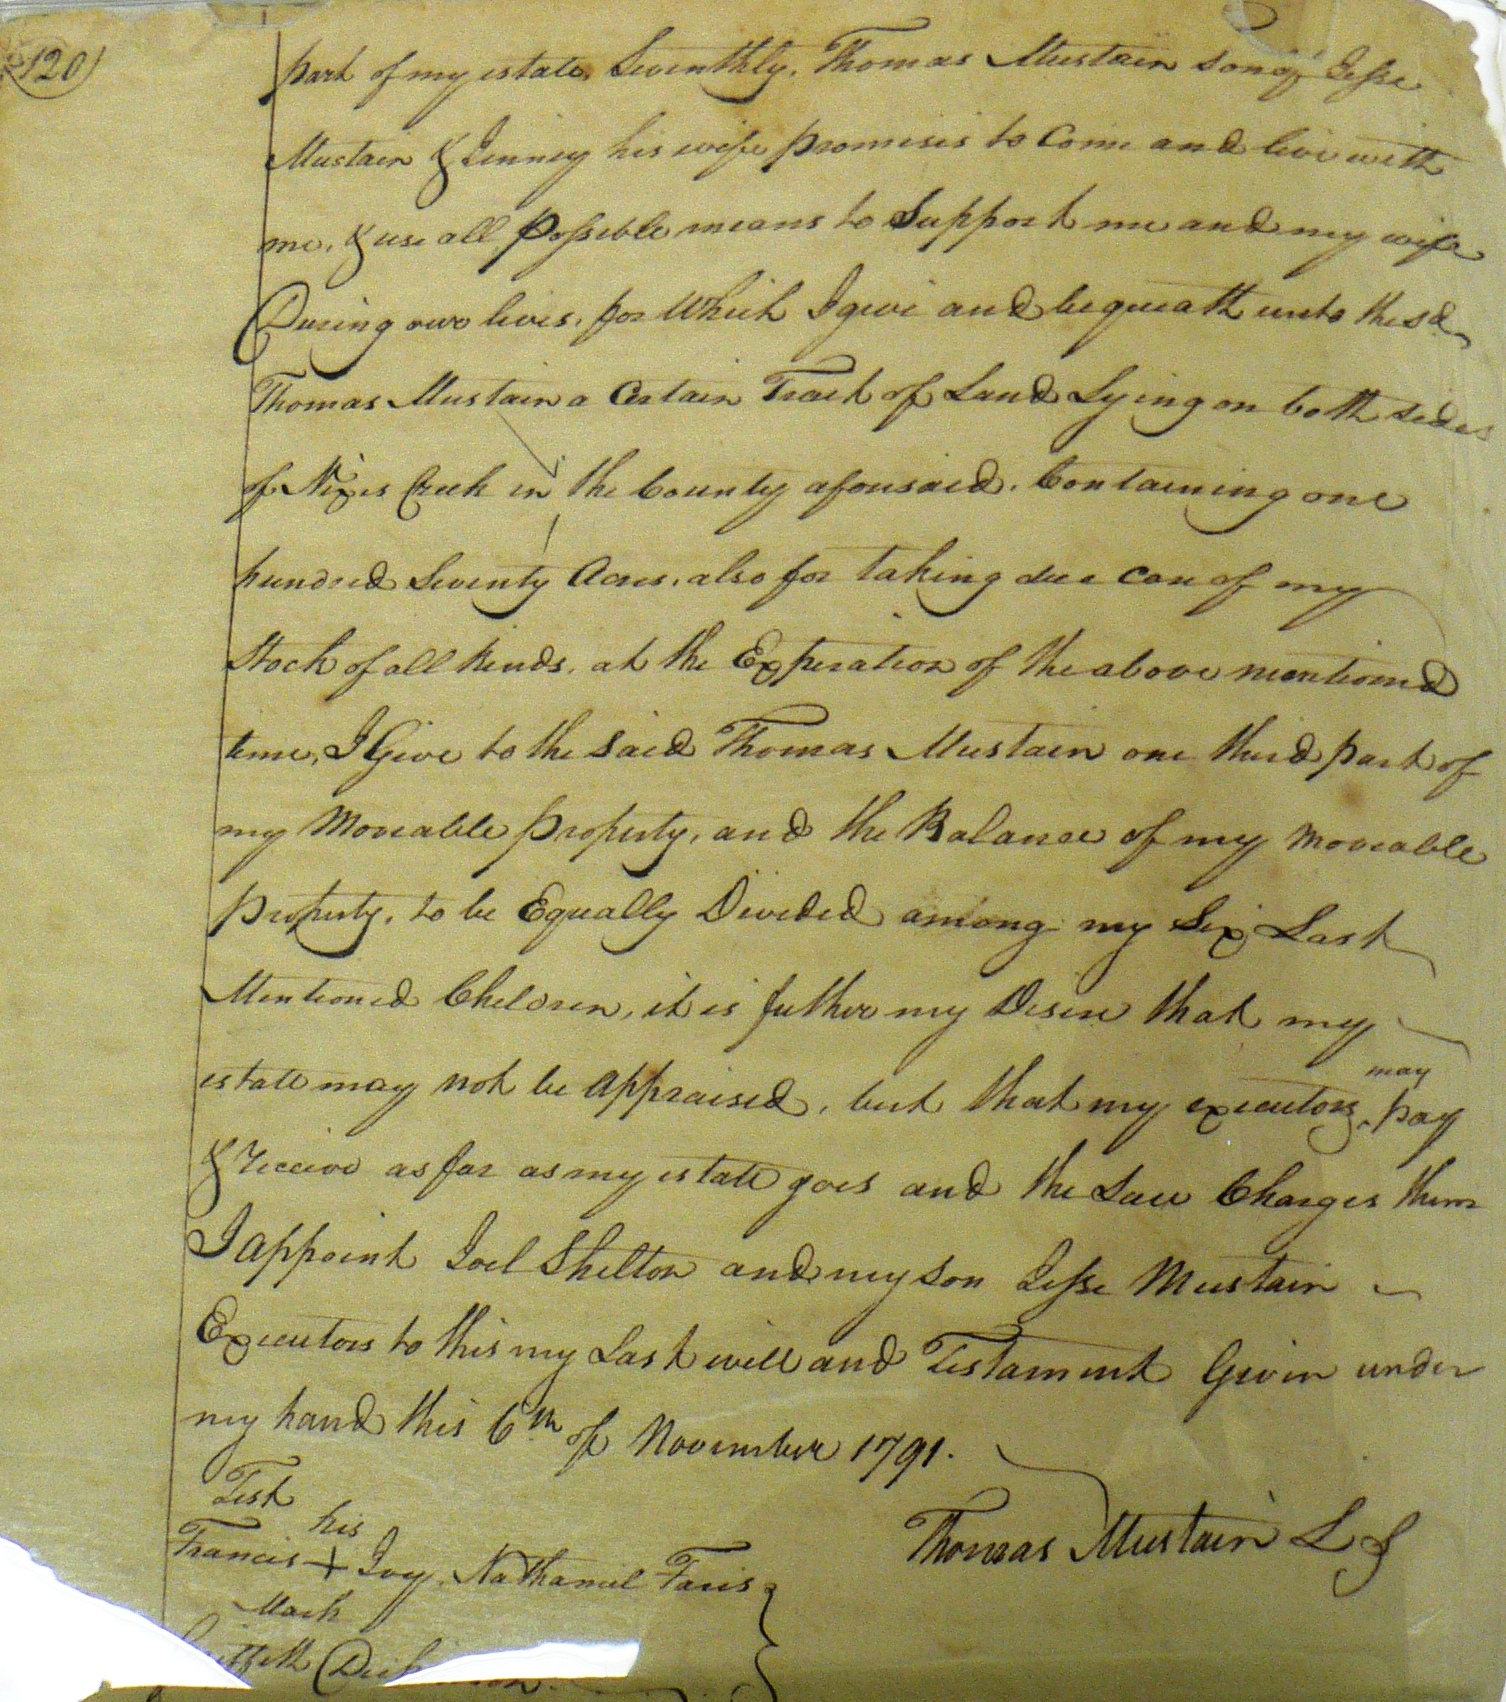 120
part of my estate, Seventhly. Thomas Mustain son of Jesse
Mustain & Jenney his wife promises to Come and live with
me, & use all Possible means to Support me and my wife
During our lives, for Which I give and bequeath unto the sd
Thomas Mustain a Certain Tract of Land Lying on both sides
of Nixes Creek in the County aforesaid. Containing one
hundred Seventy Acres, also for taking due care of my
Stock of all kinds, at the Experation of the above mentioned
time, I Give to the said Thomas Mustain one third part of
my Moveable property, and the Balance of my Moveable
property, to be Equally Divided among my Six Last
Mentioned Children, it is futher my Desire that my
estate may not be appraised, but that my executors may pay
& receive as far as my estate goes and the Law Charges them
I appoint Joel Shelton and my son Jesse Mustain
Executors to this my Last will and Testament Given under
my hand this 6th of November 1791.
Test
Thomas Mustain L S
his
Francis + Ivy. Nathaniel Faris
Mark
Griffith